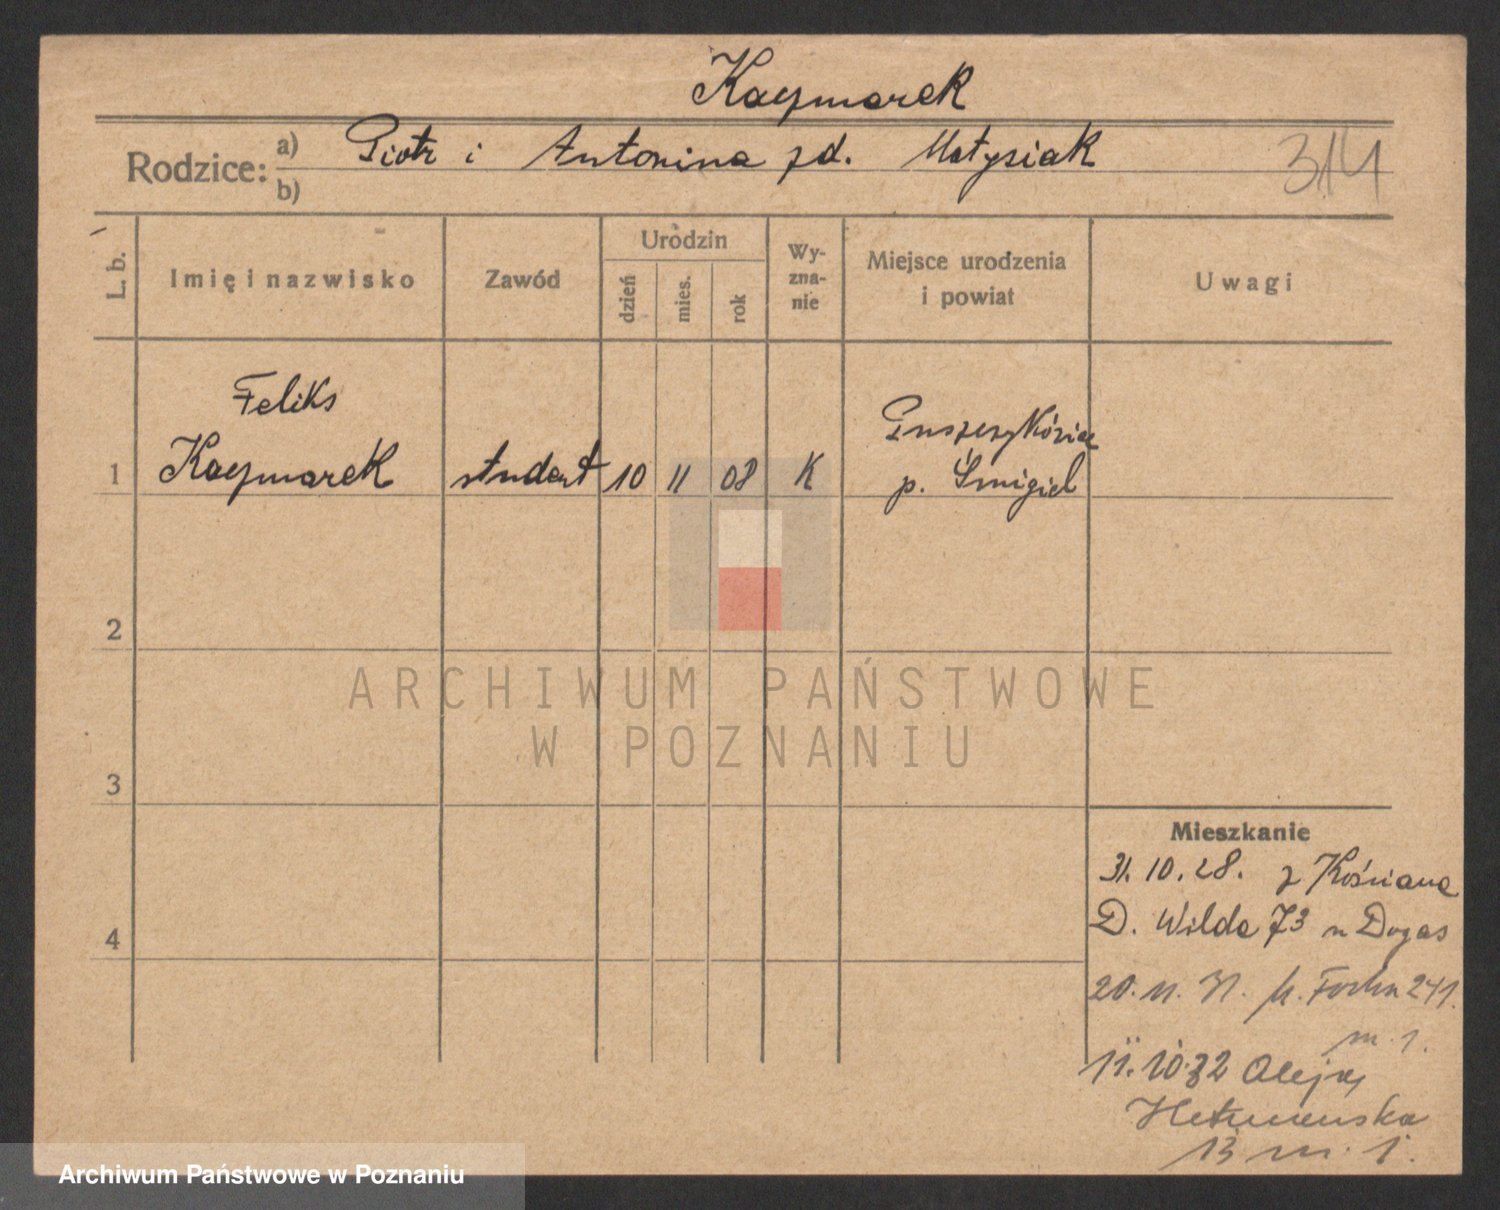 Kaczmarek
Rodzice: a) Piotr i Antonina zd. Matysiak
b)
314
L. b.
Imię i nazwisko
Zawód
Urodzin
dzień
mies.
rok
Wy-
zna-
nie
Miejsce urodzenia
i powiat
Uwagi
Feliks
1 Kaczmarek student 10 11 08 K
p. Śmigiel
2
ARCHIWUM PAŃSTWOWE
W POZNANIU
3
Mieszkanie
31.10.28. z Kościana
D. Wilda 73
4
20. 11. 31. Focha 241.
m. 1.
11.10.32 Aleja
Hetmańska
13 m. 1.
Archiwum Państwowe w Poznaniu